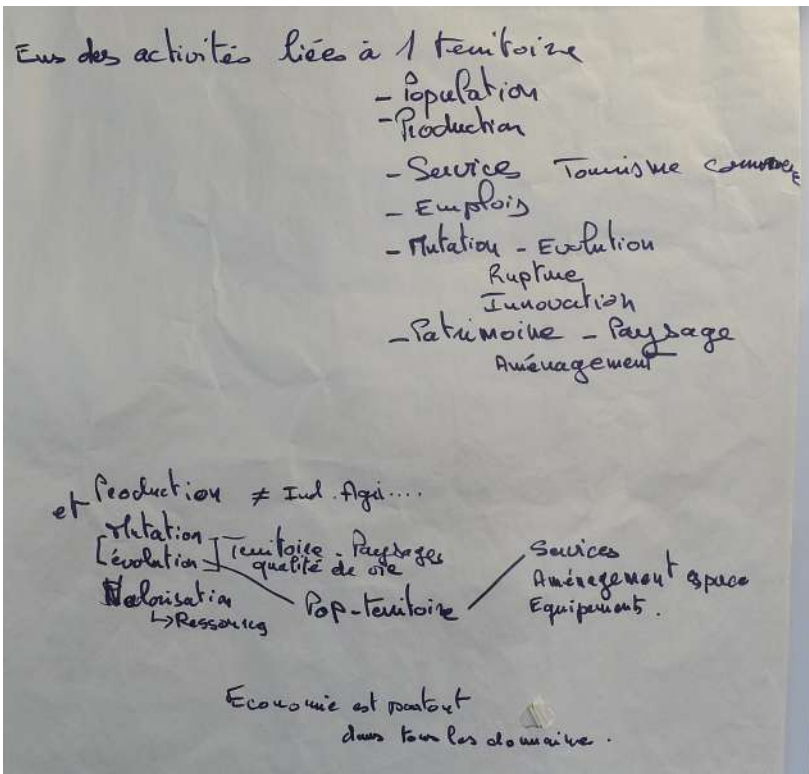 Ens des activités liées à 1 territoire
- Population
- Production
- Services Tourisme Commerce
- Emplois
- Mutation - Evolution
Rupture
Innovation
- Patrimoine - Paysage
Aménagement
Production ≠ Ind. Agri....
et Mutation
[évolution] Territoire - Paysages
qualité de vie
Valorisation
↳ Ressources
Pop-territoire
Services
Aménagement espace
Equipements.
Economie est partout
dans tous les domaines.